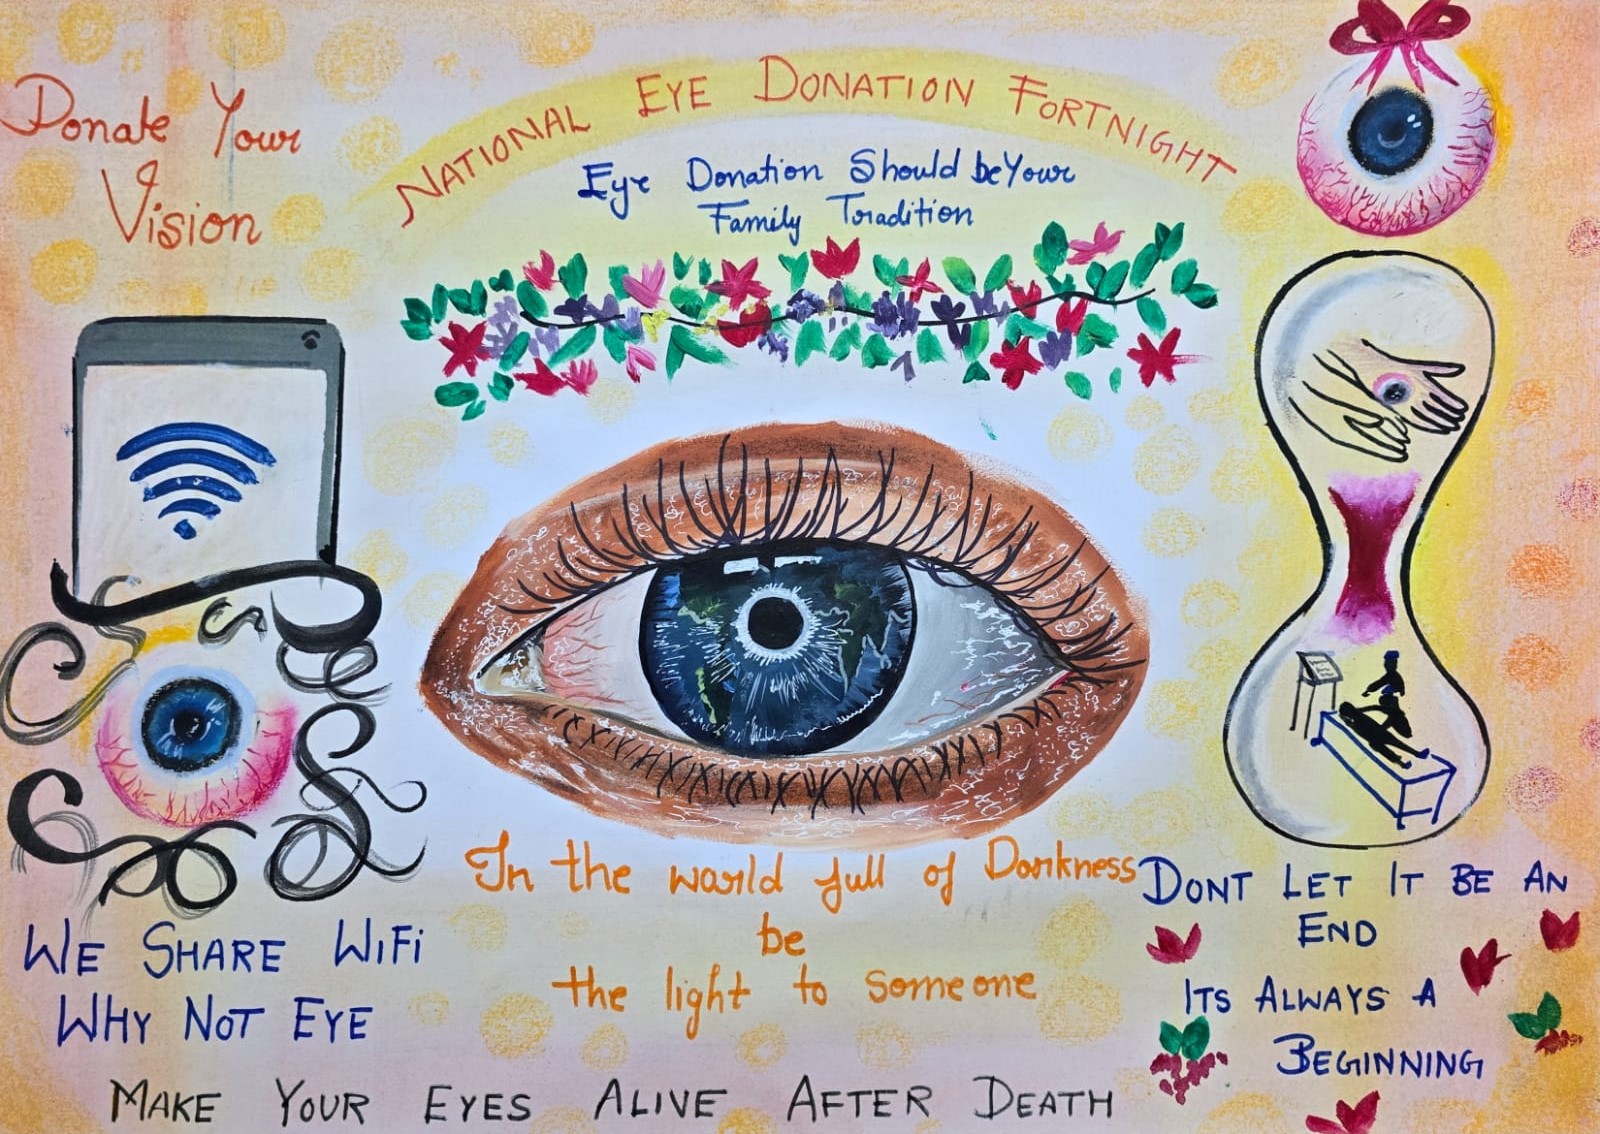 Donate Your
Vision
NATIONAL EYE DONATION FORTNIGHT
Eye Donation Should be Your
Family Tradition
In the world full of Darkness
be
the light to someone
WE SHARE WIFI
WHY NOT EYE
DONT LET IT BE AN
END
ITS ALWAYS A
BEGINNING
MAKE YOUR EYES ALIVE AFTER DEATH